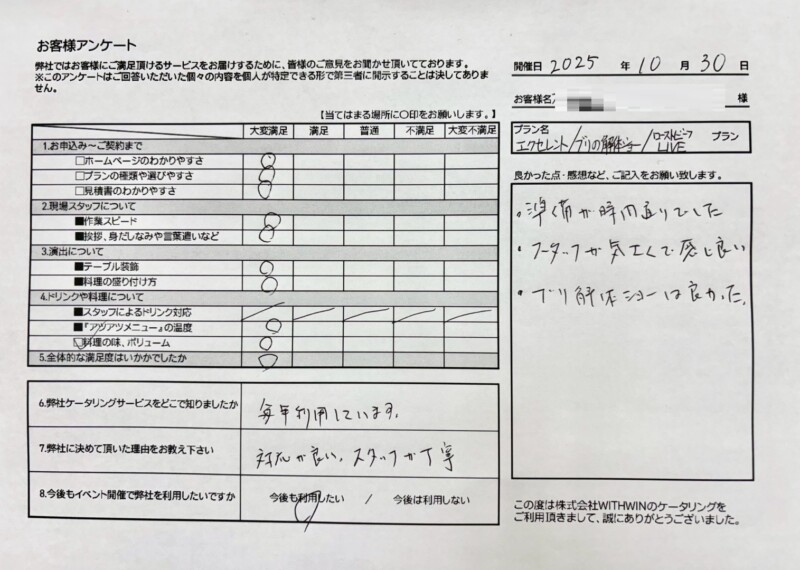 お客様アンケート
弊社ではお客様にご満足頂けるサービスをお届けするために、皆様のご意見をお聞かせ頂いてております。
※このアンケートはご回答いただいた個々の内容を個人が特定できる形で第三者に開示することは決してありま
せん。
【当てはまる場所に〇印をお願いします。】
大変満足 満足 普通 不満足 大変不満足
1.お申込み～ご契約まで
□ホームページのわかりやすさ
□プランの種類や選びやすさ
□見積書のわかりやすさ
2.現場スタッフについて
■作業スピード
■挨拶、身だしなみや言葉遣いなど
3.演出について
■テーブル装飾
■料理の盛り付け方
4.ドリンクや料理について
■スタッフによるドリンク対応
■『アツアツメニュー』の温度
□料理の味、ボリューム
5.全体的な満足度はいかかでしたか
6.弊社ケータリングサービスをどこで知りましたか 毎年利用しています。
7.弊社に決めて頂いた理由をお教え下さい 対応が良い、スタッフが丁寧
8.今後もイベント開催で弊社を利用したいですか 今後も利用したい / 今後は利用しない
開催日 2025 年 10 月 30 日
お客様名 様
プラン名
エクセレント/ブリの解体ショー/ローストビーフLIVE プラン
良かった点・感想など、ご記入をお願い致します。
・準備が時間通りでした
・スタッフが気さくで感じ良い
・ブリ解体ショーは良かった。
この度は株式会社WITHWINのケータリングを
ご利用頂きまして、誠にありがとうございました。